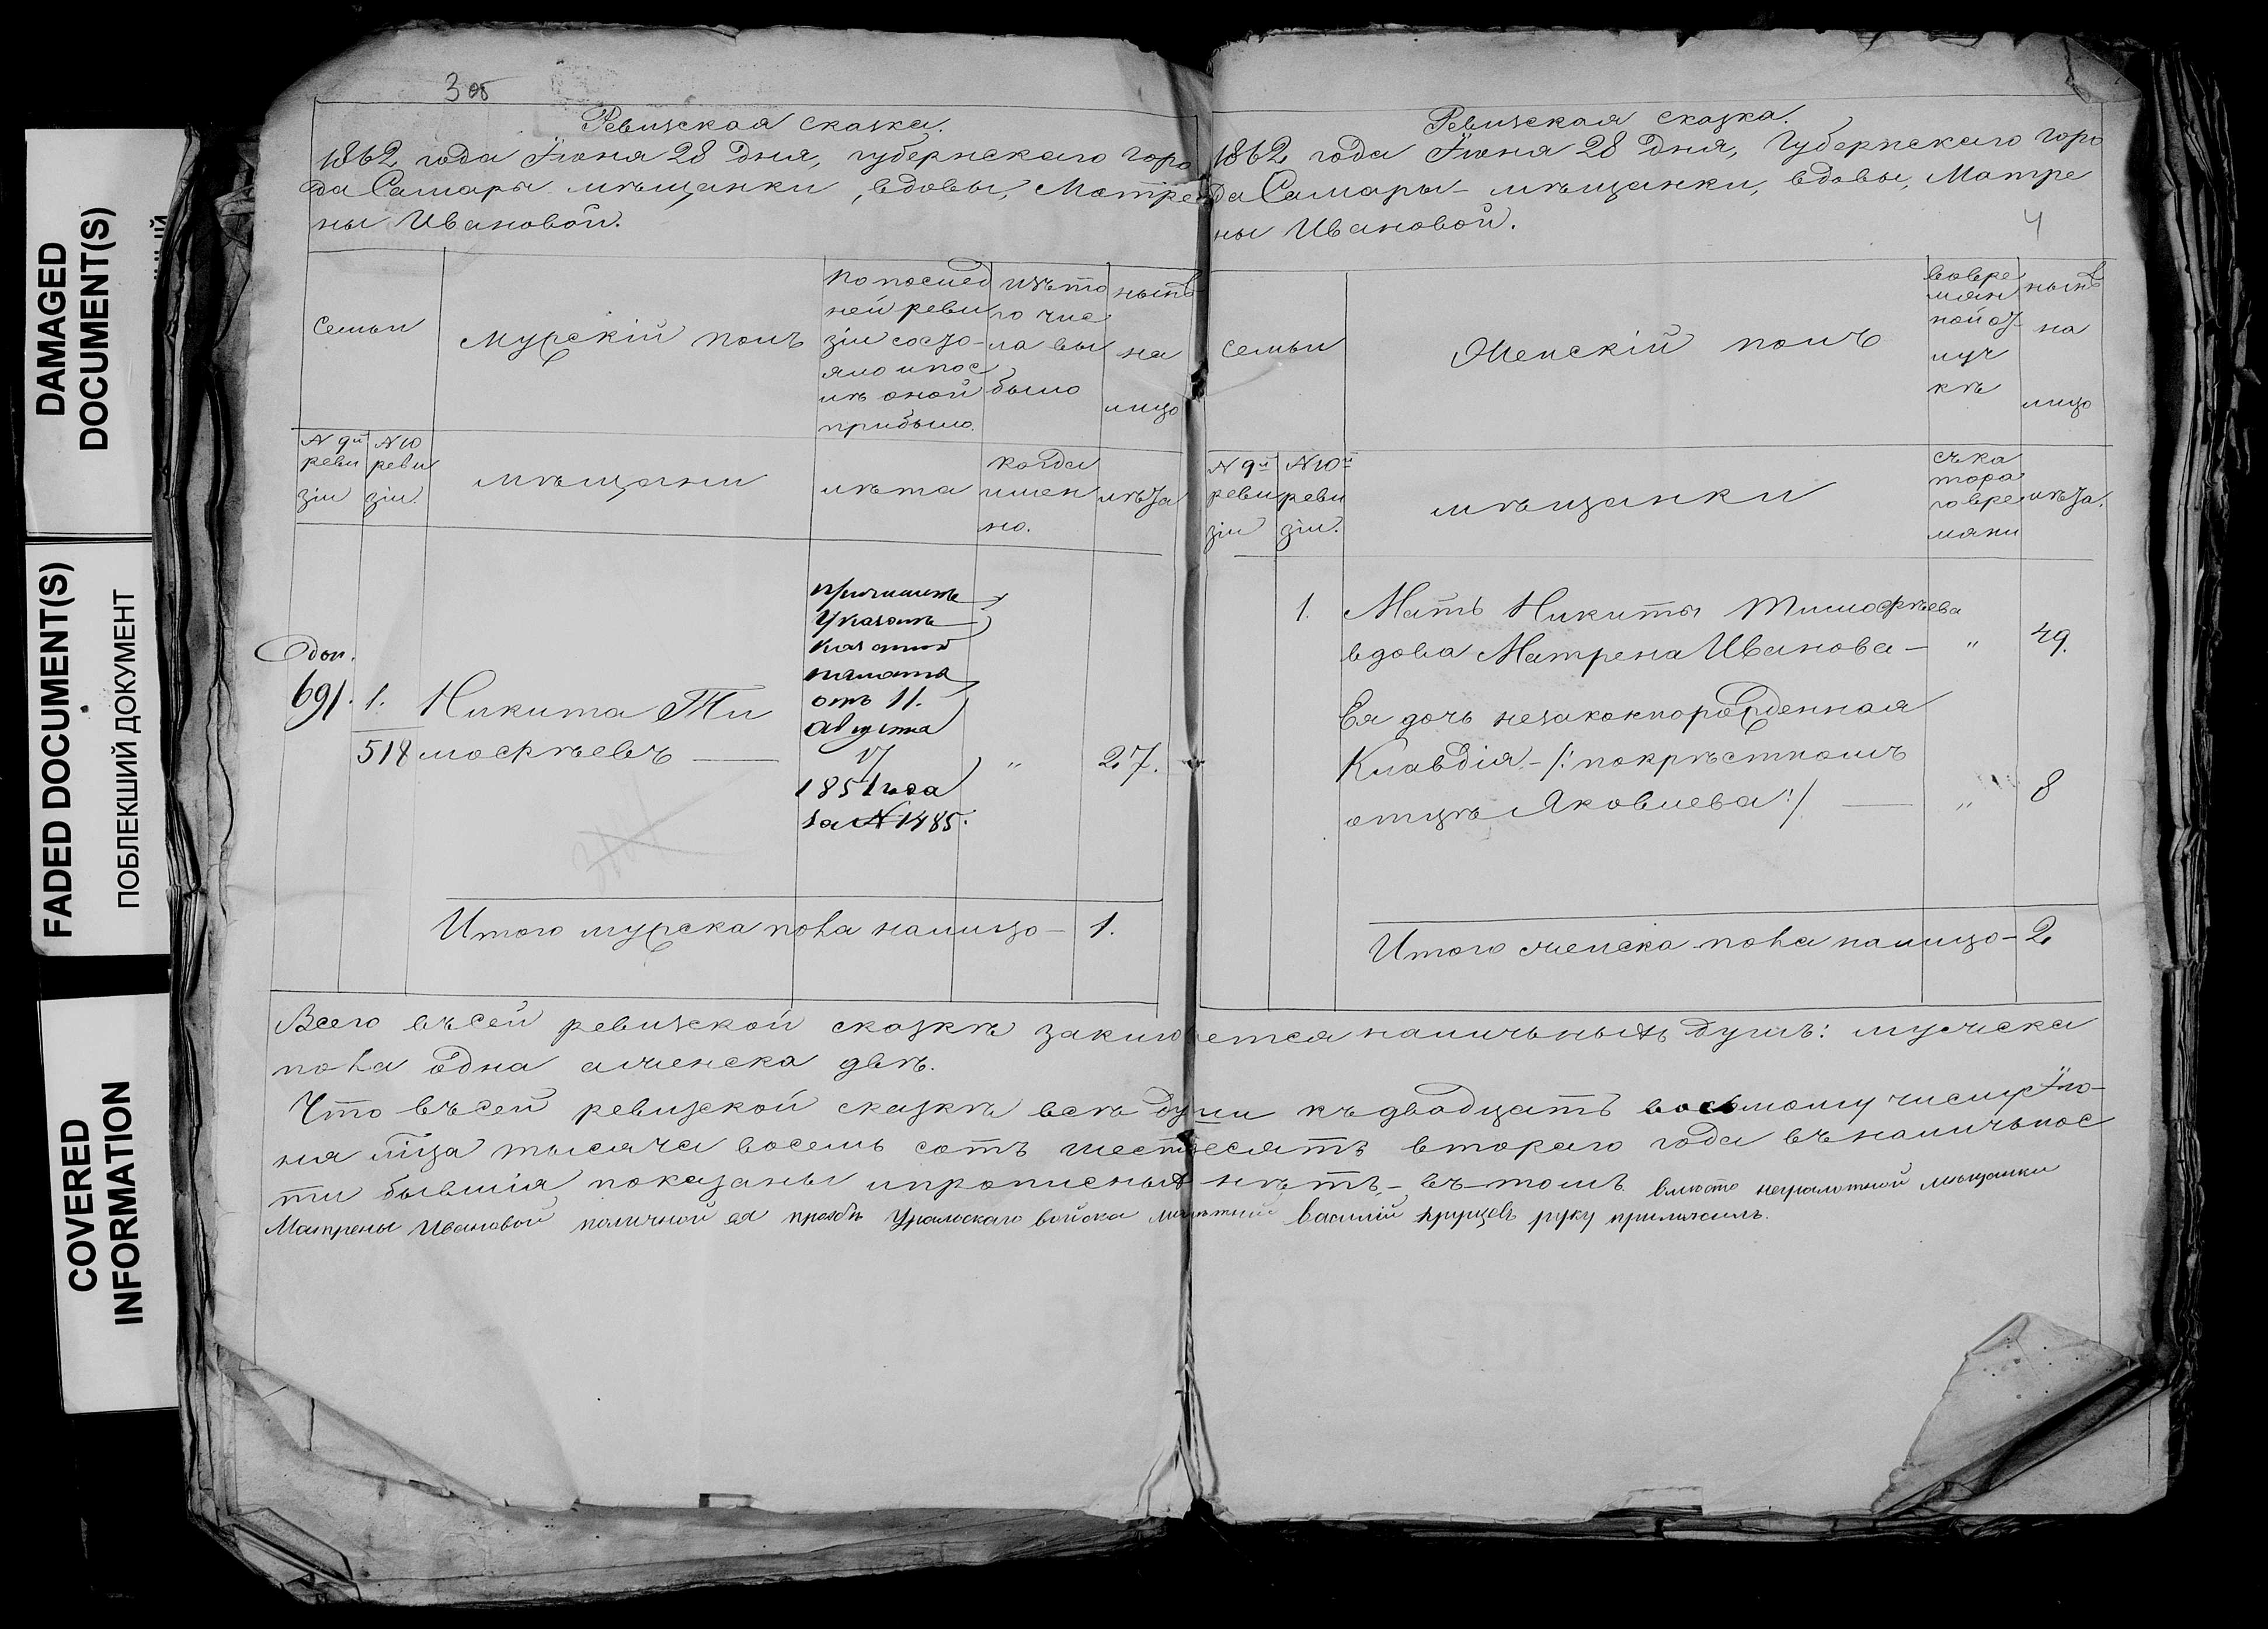 DAMAGED
DOCUMENT(S)
FADED DOCUMENT(S)
ПОБЛЕКШИЙ ДОКУМЕНТ
COVERED
INFORMATION
3 об
Ревизская сказка.
1862 года Іюня 28 дня, губернскаго горо
да Самары мѣщанки, вдовы, Матре
ны Ивановой.
Семьи
Мужскій полъ
По послед
ней реви
зіи состо-
яло и пос
лѣ оной
прибыло.
изъ то
го чис
ла вы
было
нынѣ
на
лицо
N 9й
реви
зіи
N 10
реви
зіи.
мѣщани
лѣта
когда
имен
но.
лѣта
Доп.
691. 1. Никита Ти
518 мофѣевъ — " 27.
Причислен
Указомъ
Казенной
палаты
отъ 11.
Августа
1851 года
за N 1485.
Итого мужска пола налицо — 1.
Ревизская сказка.
1862 года Іюня 28 дня, Губернскаго горо
да Самары – мѣщанки, вдовы, Матре
ны Ивановой.
4
Семьи
Женскій полъ
во вре
мян
ной от
луч
кѣ
нынѣ
на
лицо
N 9й
реви
зіи
N 10й
реви
зіи.
мѣщанки
съ ка
тора
го вре
мяни
лѣта.
1. Мать Никиты Тимофѣева
вдова Матрена Иванова – " 49.
Ея дочь незаконнорожденная
Клавдія – /: по крѣстномъ
отцѣ Яковлева :/ — " 8
Итого женска пола налицо – 2
Всего въ сей ревизской сказкѣ заключается наличныхъ душъ: мужска
пола одна а женска двѣ.
Что въ сей ревизской сказкѣ всѣ души къ двадцать восьмому числу Ію-
ня м̃ца тысяча восемь сотъ шестдесятъ втораго года въ наличьнос
ти бывшія показаны и прописныхъ нѣтъ, – въ томъ вместо неграмотной мѣщанки
Матрены Ивановой по личной ея прозбѣ Уральскаго войска Василій руку приложилъ.